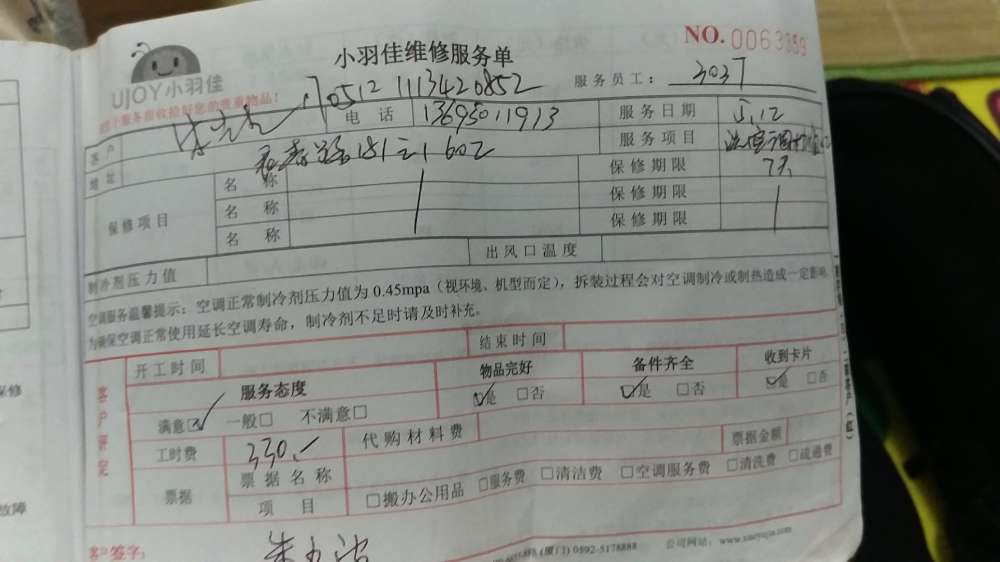 小羽佳维修服务单
NO. 0063359
UJOY小羽佳
服务员工： 3037
05121113420852
客户 电话 13695011913 服务日期 5.12
地址 181-21 602 服务项目
保修项目 名称 保修期限 7天
名称 保修期限
名称 保修期限
制冷剂压力值 出风口温度
空调服务温馨提示：空调正常制冷剂压力值为 0.45mpa（视环境、机型而定），拆装过程会对空调制冷或制热造成一定影响
为确保空调正常使用延长空调寿命，制冷剂不足时请及时补充。
开工时间 结束时间
客户评定
服务态度 物品完好 备件齐全 收到卡片
满意☑ 一般□ 不满意□ ☑是 □否 ☑是 □否 ☑是 □否
工时费 330.- 代购材料费 票据金额
票据 票据名称
项目 □搬办公用品 □服务费 □清洁费 □空调服务费 □清洗费 □疏通费
客户签字：
(厦门) 0592-5178888 公司网站：www.xiaoyujia.com
保修
故障